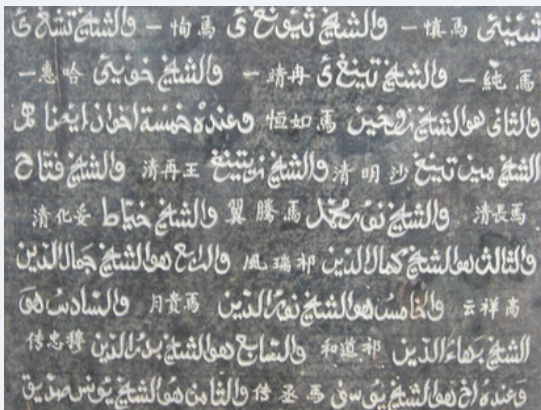 شينئ 馬慎 – والشيخ ثيونغ ئ 馬恂 – والشيخ تشغ ئ
馬純 – والشيخ تينغ ئ 冉靖 – والشيخ خويئ 哈惠 –
والثانى هو الشيخ زوخين 馬如恒 وعنده خمسة اخوان ايضا
الشيخ مين تينغ 沙明清 والشيخ زيتينغ 王再清 والشيخ فتاح
馬長清 والشيخ نور محمد 馬騰翼 والشيخ خياط 妥化清
والثالث هو الشيخ كمال الدين 祁瑞風 والرابع هو الشيخ جمال الدين
高祥云 والخامس هو الشيخ نور الدين 馬貴月 والسادس هو
الشيخ بهاء الدين 祁道和 والسابع هو الشيخ بدر الدين 穆忠传
وعنده اخ هو الشيخ يوسف 馬丞传 والثامن هو الشيخ يونس صديق